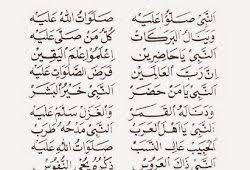 اَلنَّبِىْ صَلُّوْا عَلَيْهِ صَلَوَاتُ اللهِ عَلَيْهِ
وَيَنَالُ الْبَرَكَاتِ كُلُّ مَنْ صَلَّى عَلَيْهِ
اَلنَّبِىْ يَا حَاضِرِيْنَ اِعْلَمُوْا عِلْمَ الْيَقِيْنِ
اِنَّ رَبَّ الْعَالَمِيْنَ فَرَضَ الصَّلَوَاتِ عَلَيْهِ
اَلنَّبِىْ يَا مَنْ حَضَرَ اَلنَّبِىْ خَيْرُ الْبَشَرْ
وَدَنَا لَهُ الْقَمَرْ وَالْغَزَلْ سَلَّمْ عَلَيْهِ
اَلنَّبِىْ يَا اَهْلَ الْعَرَبْ اَلنَّبِىْ مَدْحُهُ طَرَبْ
صَلَوَاتُ اللهِ عَلَيْهِ
اَلنَّبِىْ ذَاكَ الْعَرُوْسْ ذِكْرُهُ يُحْيِى النُّفُوْسْ